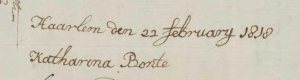 Haarlem den 22 february 1818
Katharina Bonte